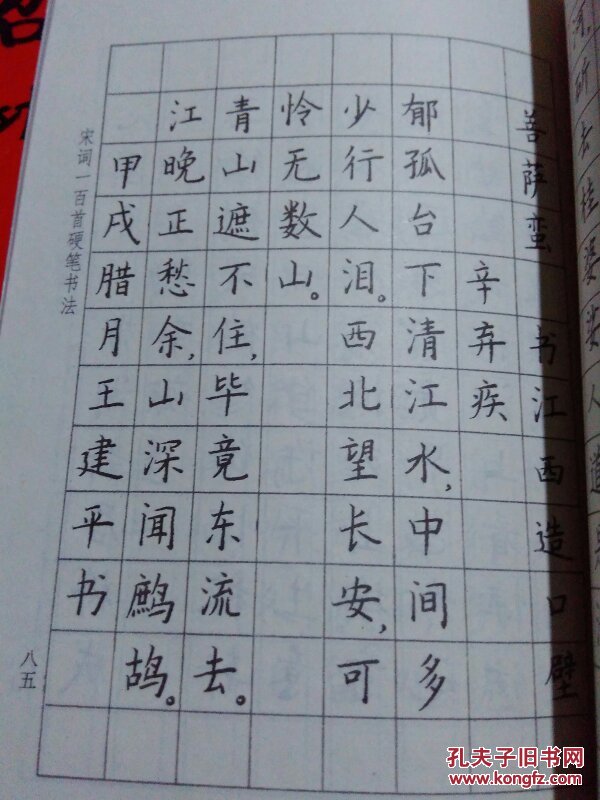 斫去桂婆娑人道
菩萨蛮 书江西造口壁
辛弃疾
郁孤台下清江水，中间多
少行人泪。西北望长安，可
怜无数山。
青山遮不住，毕竟东流去。
江晚正愁余，山深闻鹧鸪。
甲戌腊月王建平书
宋词一百首硬笔书法
八五
孔夫子旧书网
www.kongfz.com